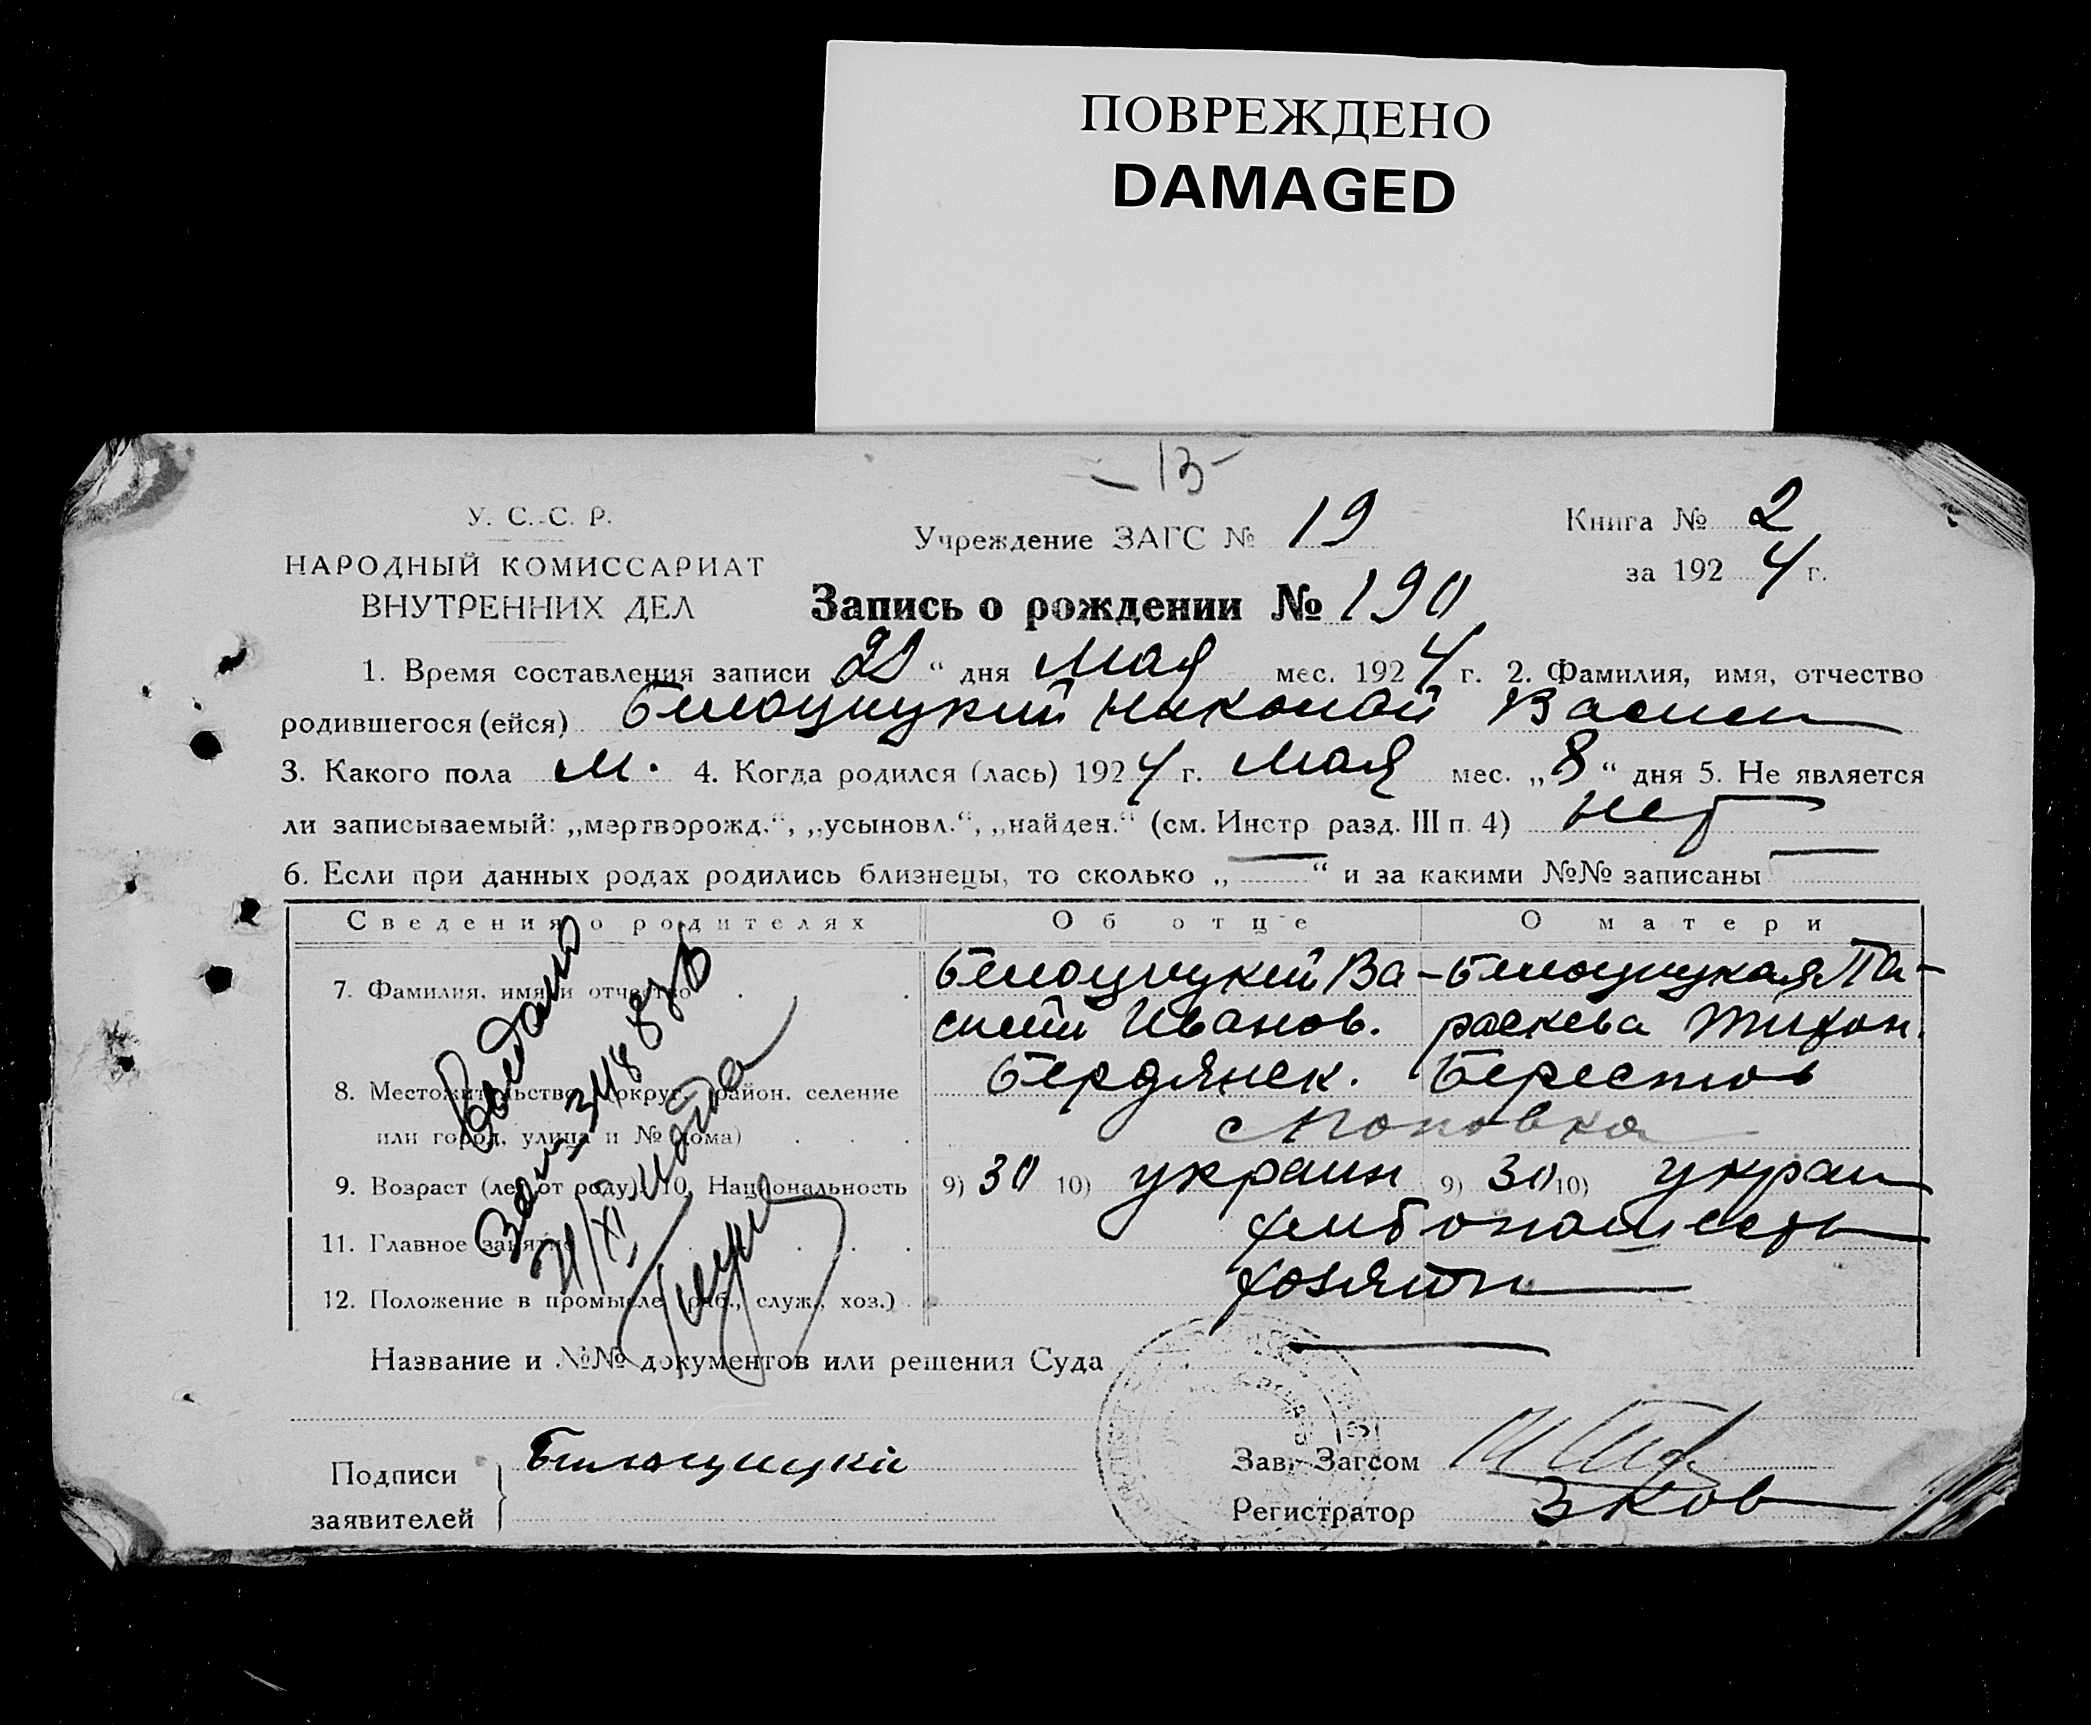 ПОВРЕЖДЕНО
DAMAGED
- 13 -
У. С. С. Р.
НАРОДНЫЙ КОМИССАРИАТ
ВНУТРЕННИХ ДЕЛ
Учреждение ЗАГС № 19
Книга № 2
за 1924 г.
Запись о рождении № 190
1. Время составления записи 22 “ дня Мая мес. 1924 г. 2. Фамилия, имя, отчество
родившегося (ейся) Белоцицкий Николай Васил
3. Какого пола м. 4. Когда родился (лась) 1924 г. Мая мес. „8“ дня 5. Не является
ли записываемый: „мертворожд.“, „усыновл.“, „найден.“ (см. Инстр разд. III п. 4) нет
6. Если при данных родах родились близнецы, то сколько „ — “ и за какими №№ записаны —
Сведения о родителях Об отце О матери
7. Фамилия, имя и отчество Белоцицкий Ва- Белоцицкая Па-
силий Иванов. раскева Тихон.
8. Местожительство (округ, район, селение Бердянск. Берестов
или город, улица и № дома) с Поповка
9. Возраст (лет от роду) 10. Национальность 9) 30 10) украин 9) 30 10) украи
11. Главное занятие хлебопашеств
12. Положение в промысле (раб., служ., хоз.) хозяин
Название и №№ документов или решения Суда —
Выдано
Подписи
заявителей
Белоцицкий
Зав. Загсом
Регистратор